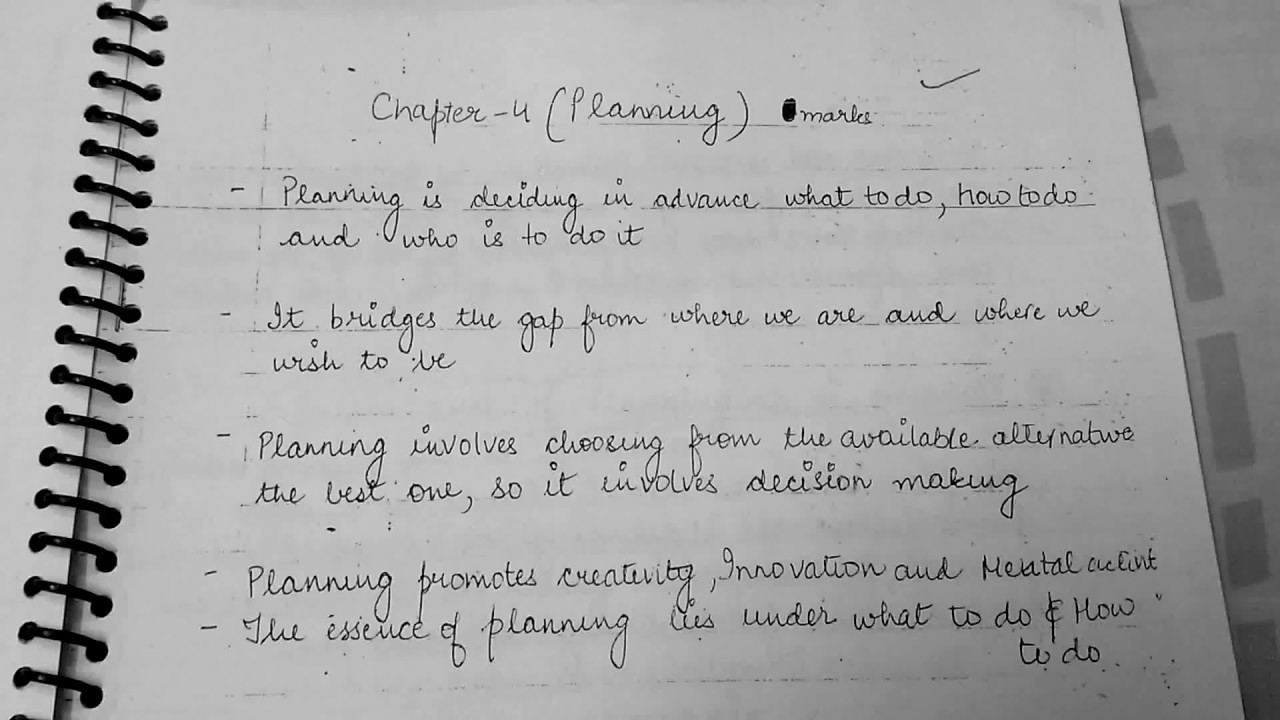 Chapter-4 (Planning) marks
- Planning is deciding in advance what to do, how to do
and who is to do it
- It bridges the gap from where we are and where we
wish to be
- Planning involves choosing from the available alternative
the best one, so it involves decision making
- Planning promotes creativity, Innovation and Mental
- The essence of planning lies under what to do & How
to do